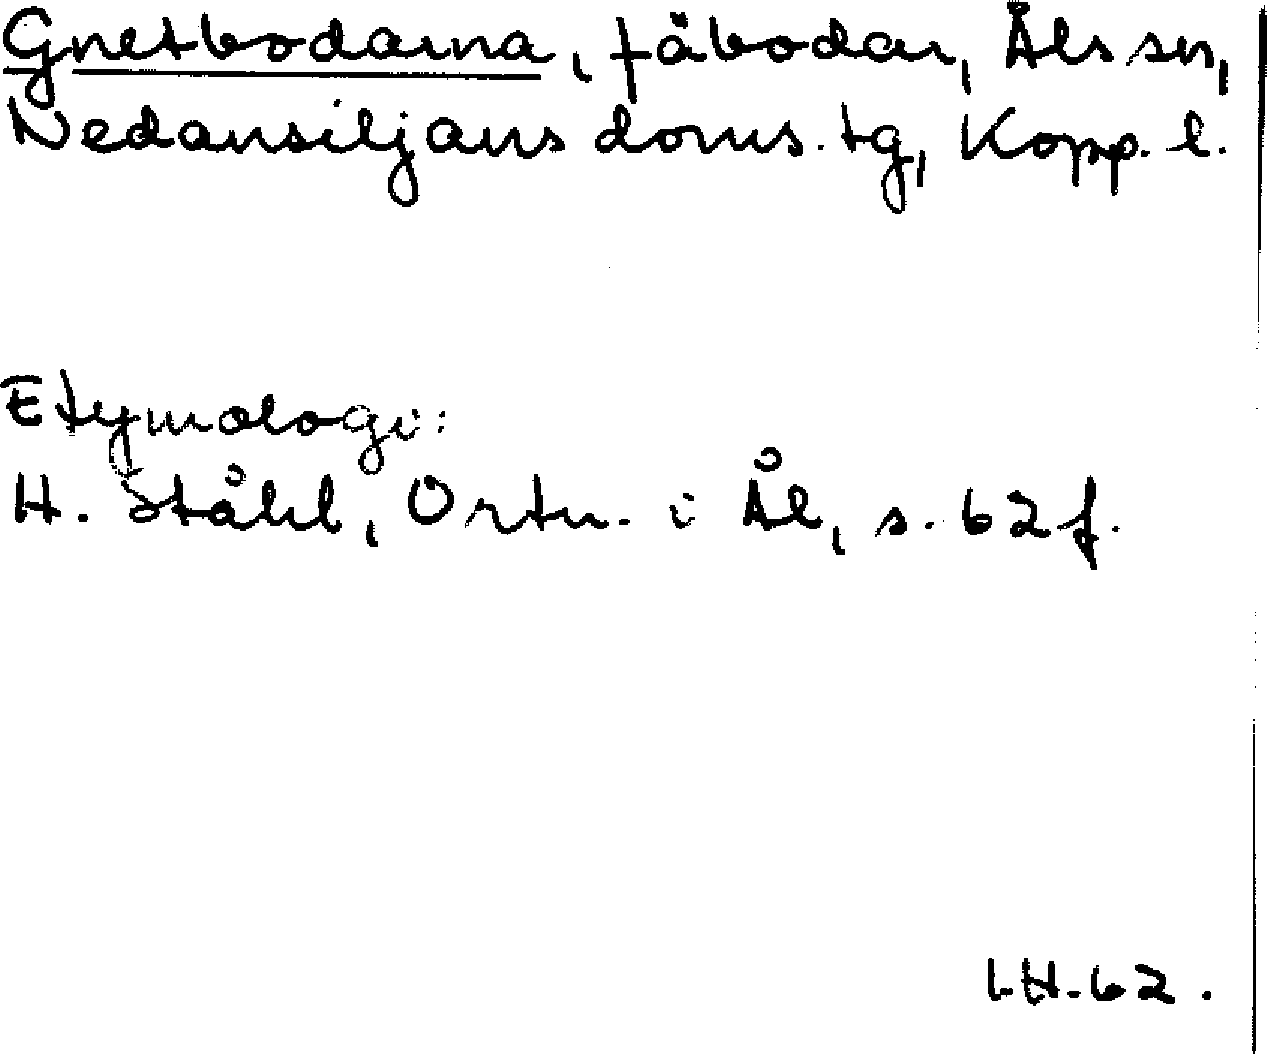 Gnetbodarna, fäbodar, Åls sn,
Nedansiljans doms.tg, Kopp. l.
Etymologi:
H. Ståhl, Ortn. i Ål, s. 62 f.
I.H.-62.